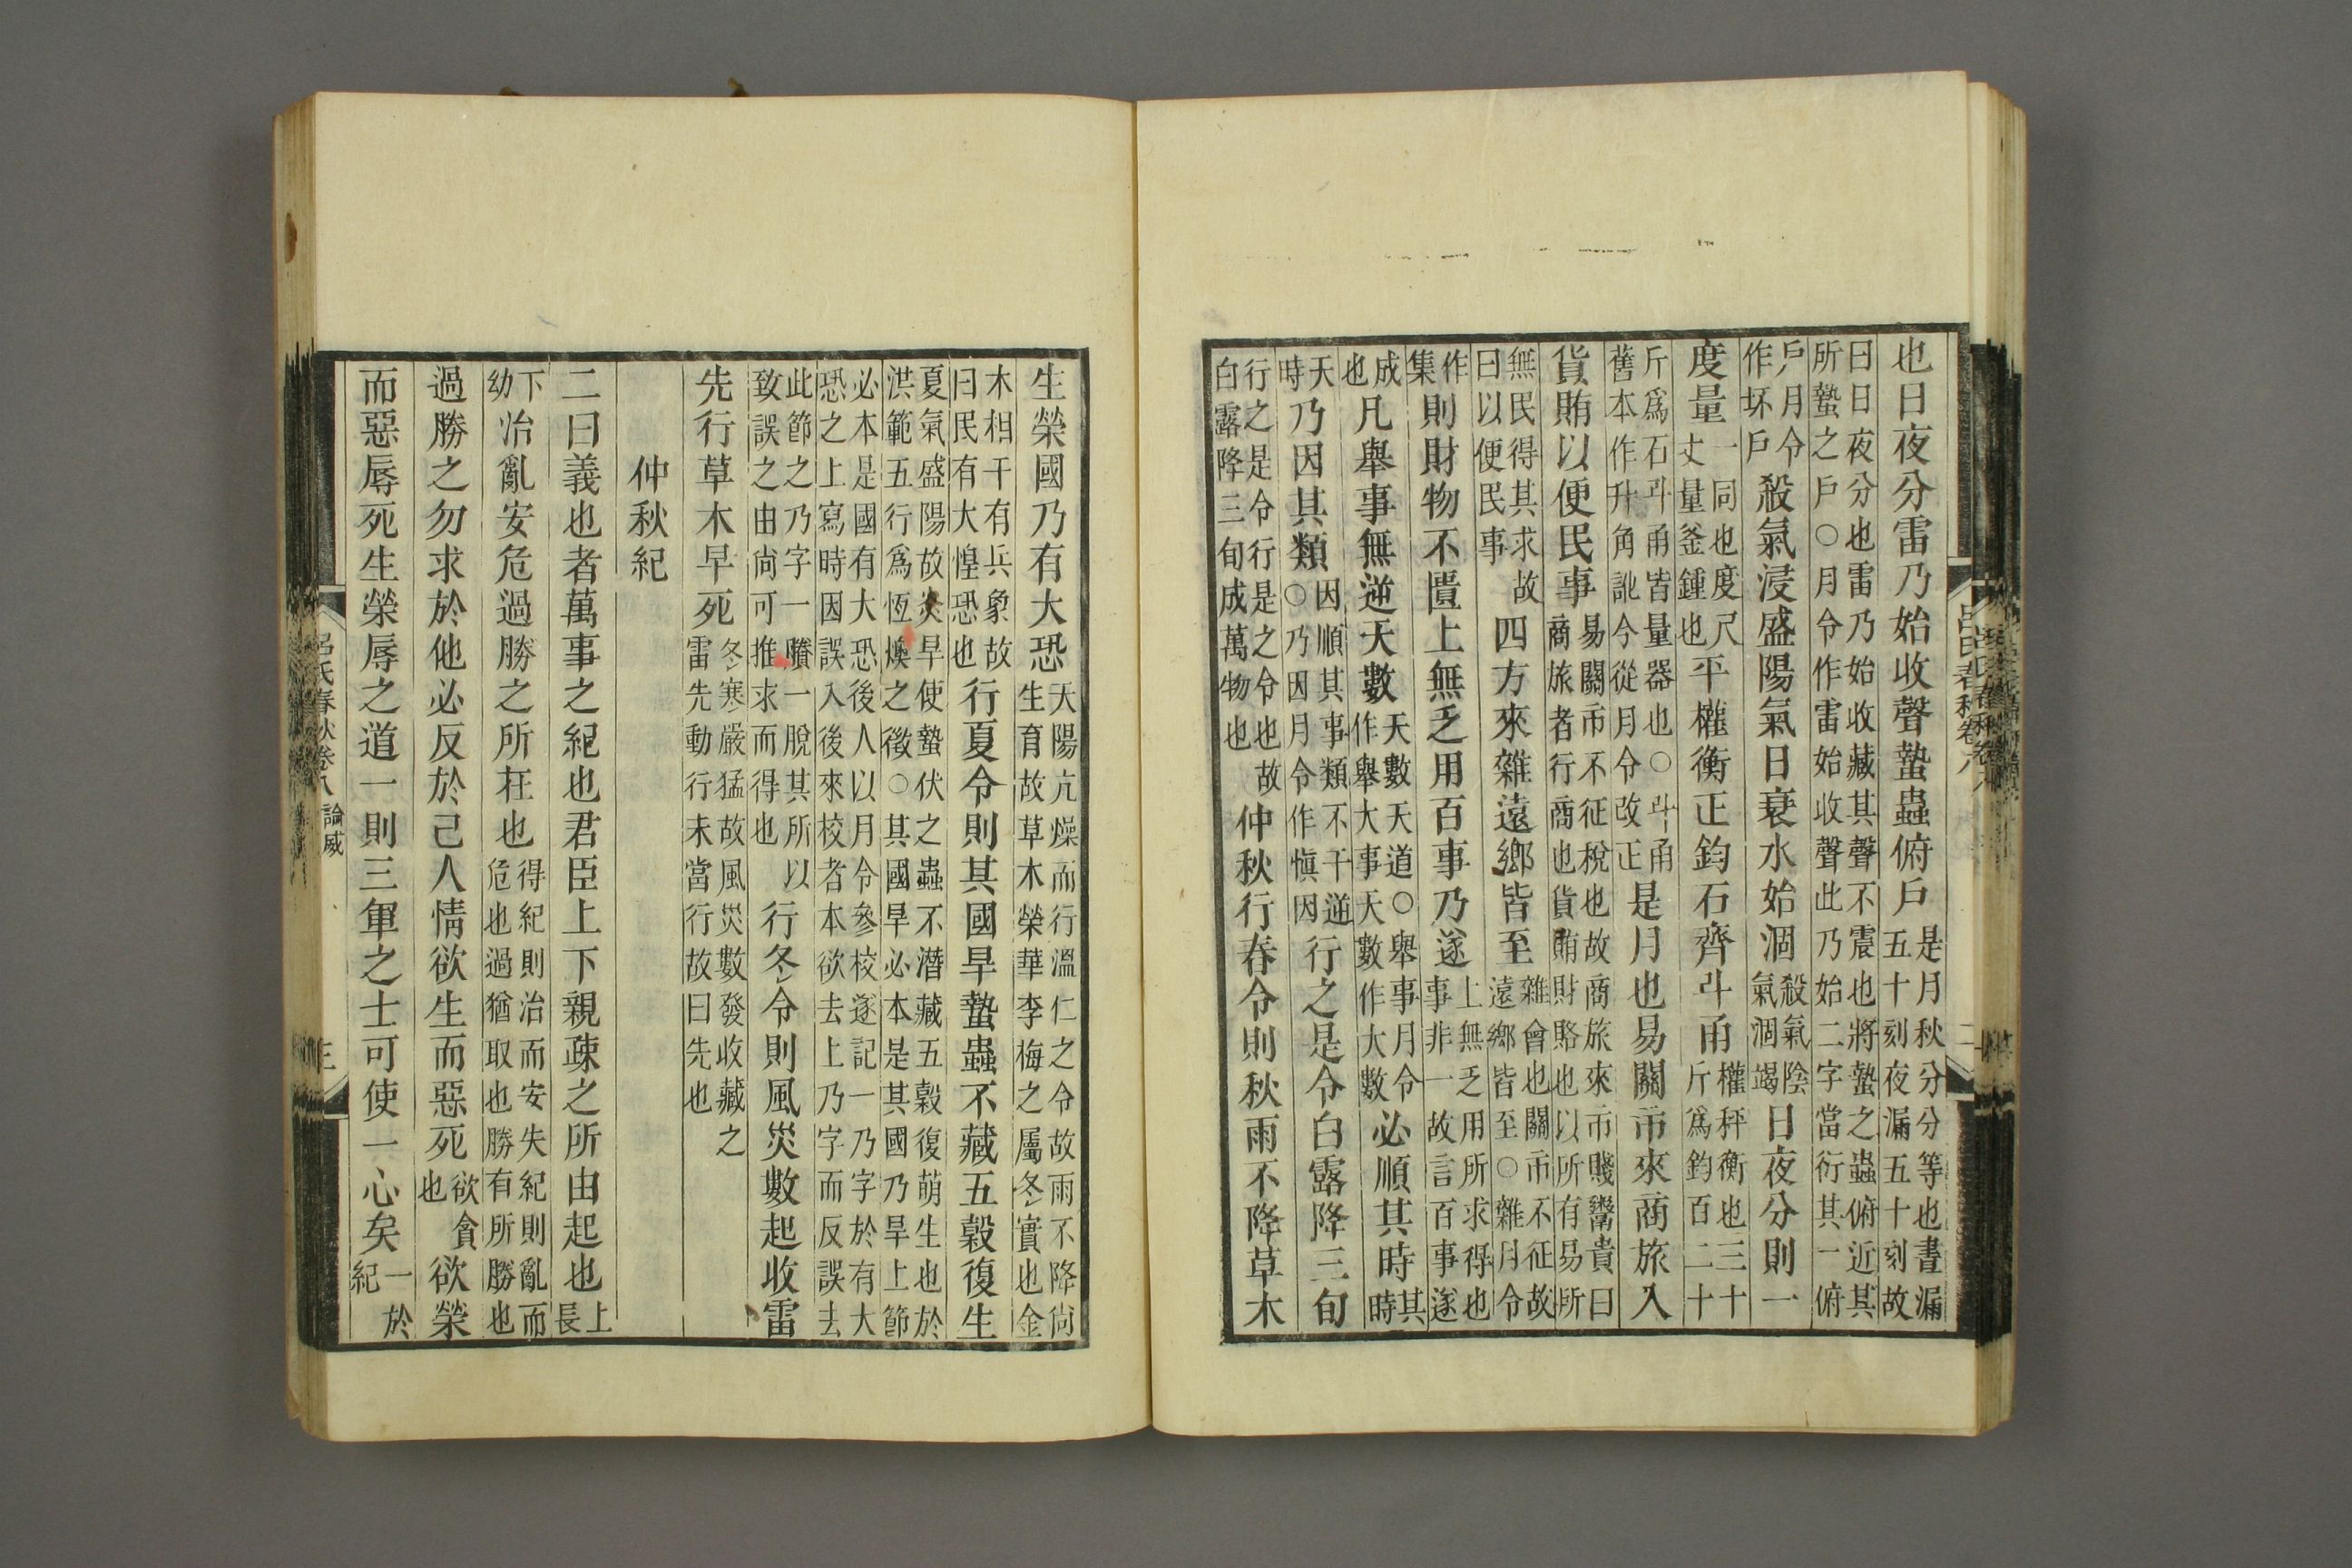 也日夜分雷乃始收聲蟄蟲俯戶是月秋分分等也晝漏五十刻夜漏五十刻故
曰日夜分也雷乃始收藏其聲不震也將蟄之蟲俯近其所蟄之戶○月令作雷始收聲此乃始二字當衍其一俯
戶月令作坏戶殺氣浸盛陽氣日衰水始涸殺氣陰氣涸竭日夜分則一
度量一同也度尺丈量釜鍾也平權衡正鈞石齊斗甬權秤衡也三十斤爲鈞百二十
斤爲石斗甬皆量器也○斗甬舊本作升角訛今從月令改正是月也易關市來商旅入
貨賄以便民事易關市不征稅也故商旅來市賤鬻貴曰商旅者行商也貨賄財賂也以所有易所
無民得其求故曰以便民事四方來雜遠鄉皆至雜會也關市不征故遠鄉皆至○雜月令
作集則財物不匱上無乏用百事乃遂上無乏用所求得也事非一故言百事遂
成也凡舉事無逆天數天數天道○舉事月令作舉大事天數作大數必順其時其時
天時乃因其類因順其事類不干逆○乃因月令作愼因行之是令白露降三旬
行之是令行是之令也故白露降三旬成萬物也仲秋行春令則秋雨不降草木
呂氏春秋卷八
二
生榮國乃有大恐天陽亢燥而行溫仁之令故雨不降尙生育故草木榮華李梅之屬冬實也金
木相干有兵象故曰民有大惶恐也行夏令則其國旱蟄蟲不藏五穀復生
夏氣盛陽故炎旱使蟄伏之蟲不潛藏五穀復萌生也於洪範五行爲恆燠之徵○其國旱必本是其國乃旱上節
必本是國有大恐後人以月令參校遂記一乃字於有大恐之上寫時因誤入後來校者本欲去上乃字而反誤去
此節之乃字一贅一脫其所以致誤之由尙可推求而得也行冬令則風災數起收雷
先行草木早死冬寒嚴猛故風災數發收藏之雷先動行未當行故曰先也
仲秋紀
二曰義也者萬事之紀也君臣上下親疎之所由起也上長
下幼治亂安危過勝之所在也得紀則治而安失紀則亂而危也過猶取也勝有所勝也
過勝之勿求於他必反於己人情欲生而惡死欲貪也欲榮
而惡辱死生榮辱之道一則三軍之士可使一心矣一於紀
呂氏春秋卷八 論威
三